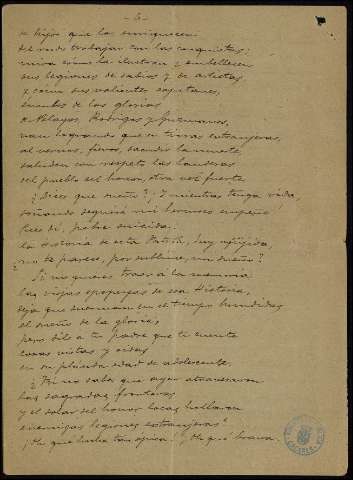 - 6 -
de hijos que la enriquecen
del modo trabajar con las conquistas:
mira cómo la ilustran y embellecen
sus legiones de sabios y de artistas
y cómo sus valientes capitanes,
émulos de las glorias
de Pelayos, Rodrigos y Guzmanes,
van logrando que en tierras extranjeras,
al verlos, fieros, the muerte,
saludan con respeto las banderas
del pueblo del honor, otra vez fuerte
¿Dices que sueño? ¡Y mientras tenga vida,
soñando seguiré mi hermoso
la historia de esta Patria, hoy afligida,
¿no te parece, por sublime, un sueño?
Si no quieres traer a la memoria
las viejas epopeyas de esa Historia,
deja que duerman en el tiempo hundidas
el sueño de la gloria,
pero dile a tu padre que te cuente
cosas vistas y oídas
en su plácida edad de adolescente.
¿Tú no sabes que ayer atravesaron
las sagradas fronteras
y el solar del honor locas hollaron
enemigas legiones extranjeras?
¡Oh qué lucha tan épica! ¡Oh qué brava